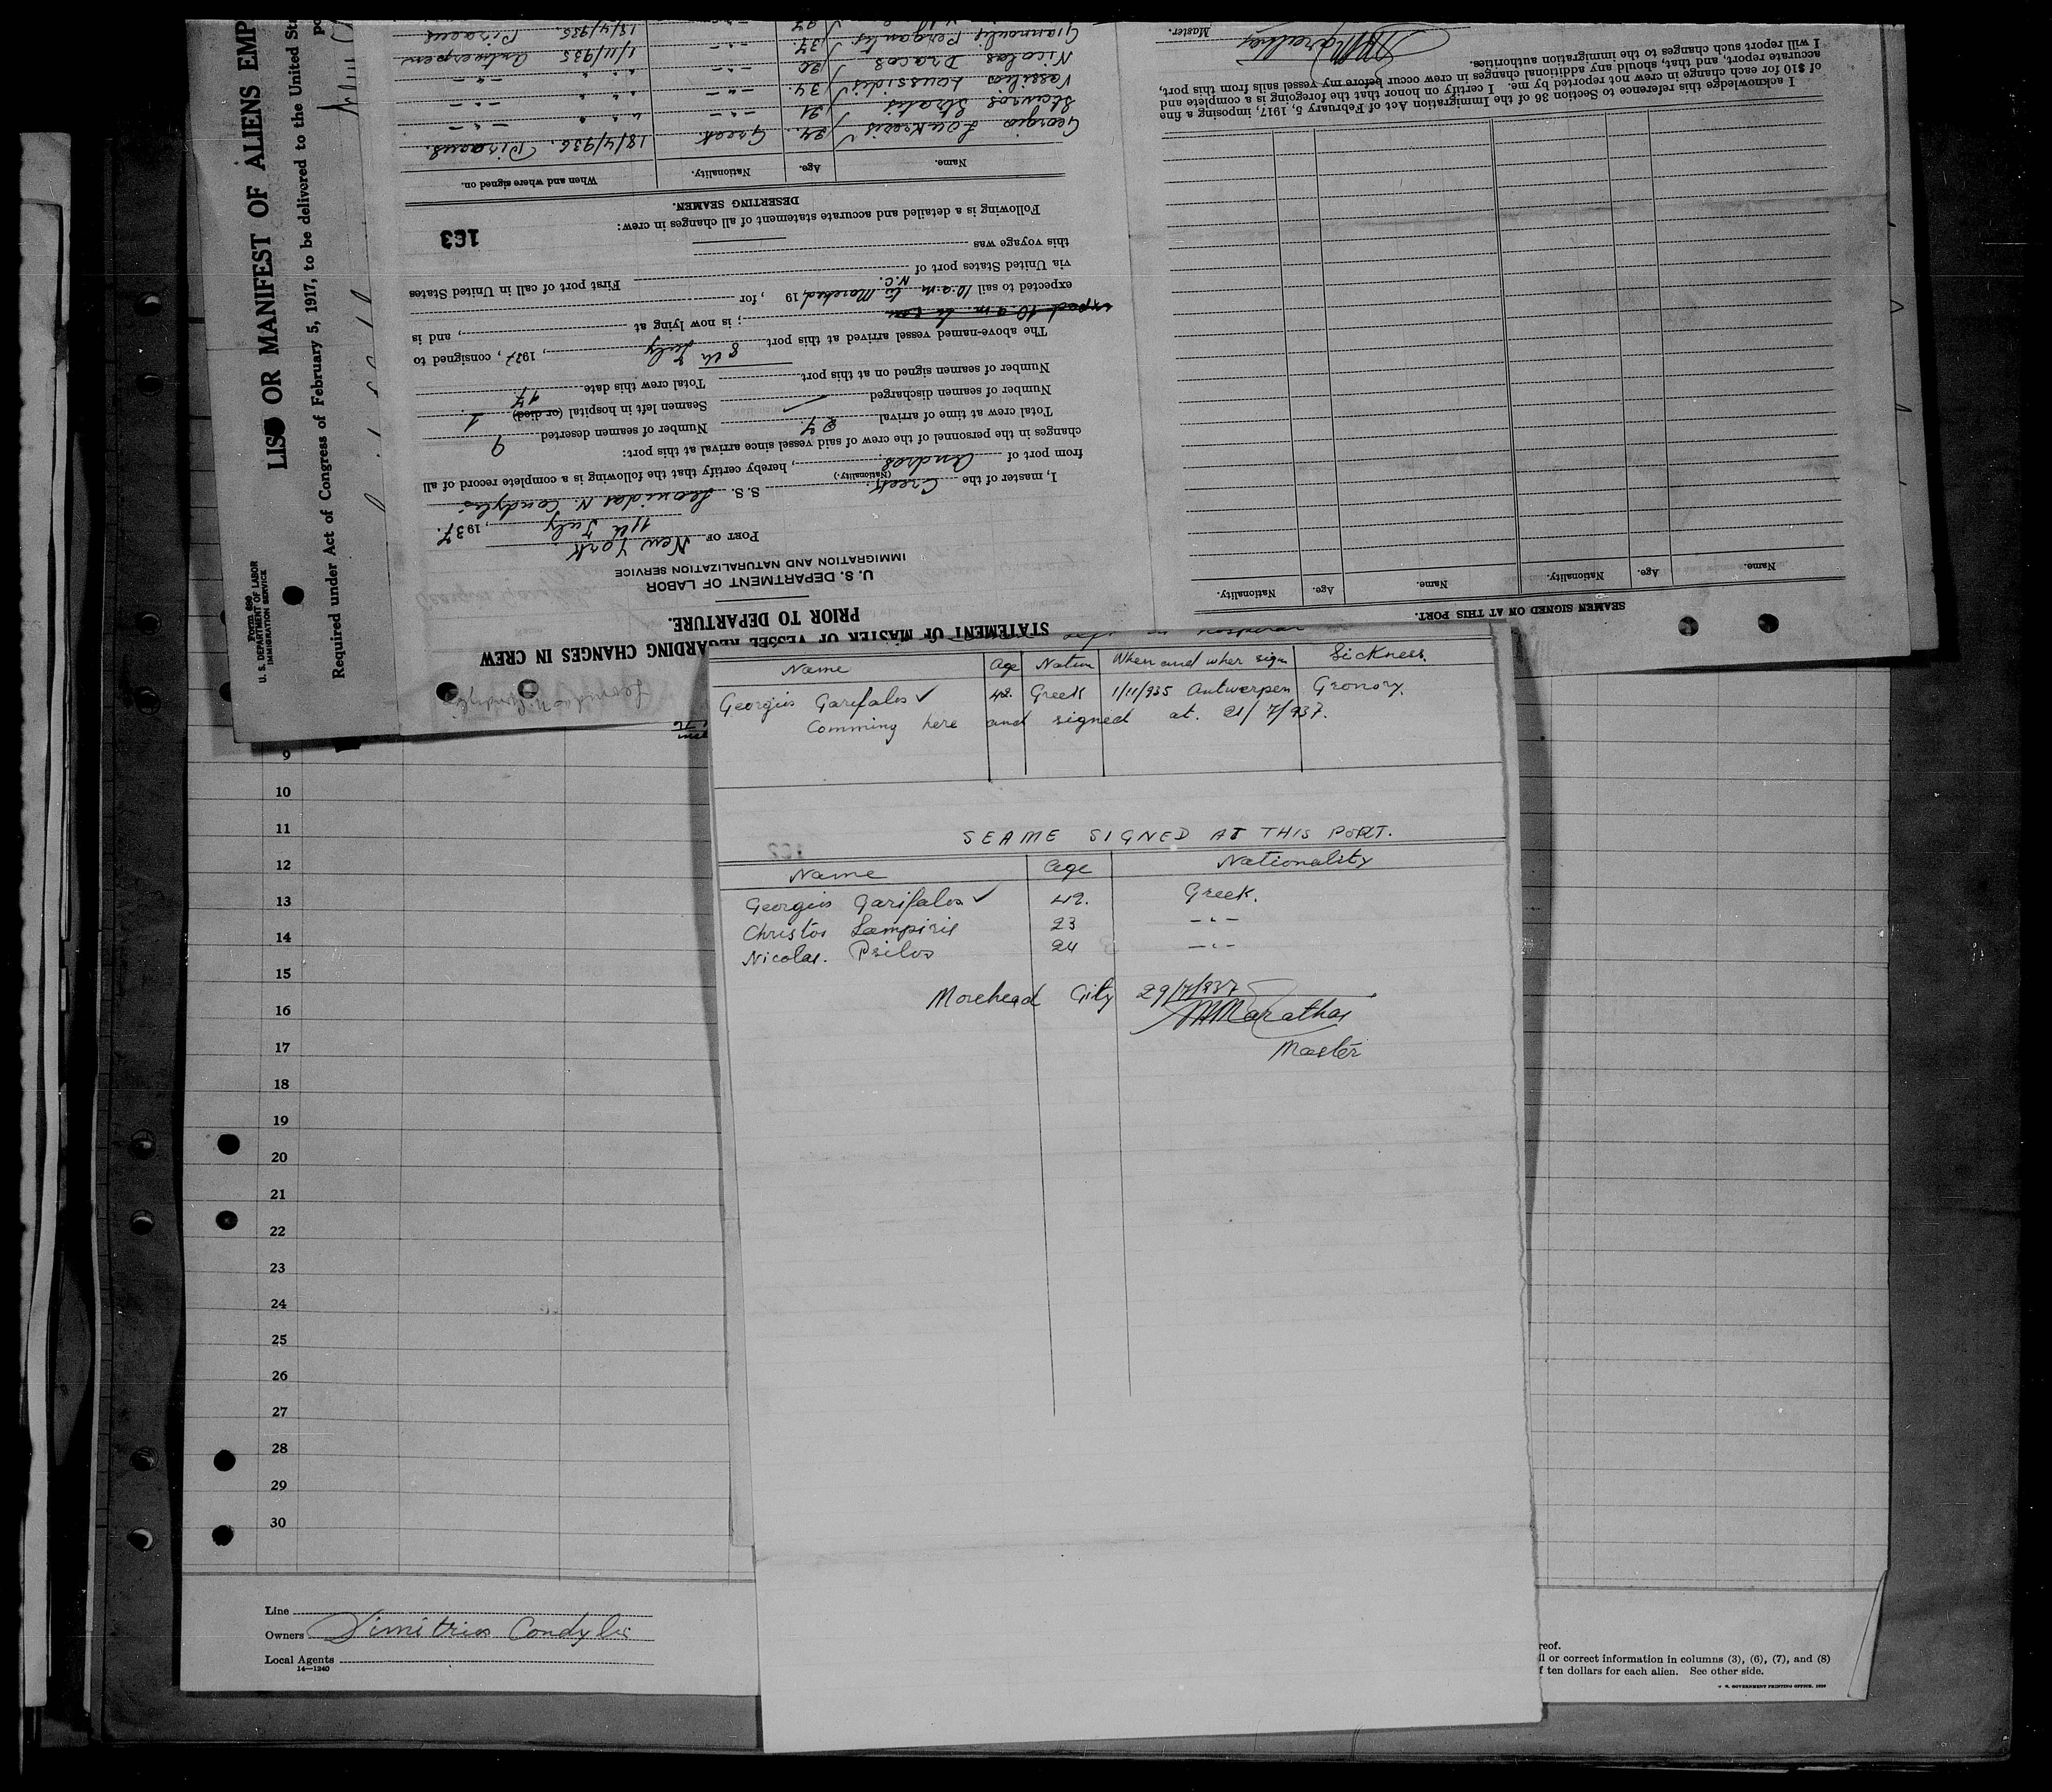 LIST OR MANIFEST OF ALIENS EMP
Required under Act of Congress of February 5, 1917, to be delivered to the United St
Form 689
U. S. DEPARTMENT OF LABOR
IMMIGRATION SERVICE
STATEMENT OF MASTER OF VESSEL REGARDING CHANGES IN CREW
PRIOR TO DEPARTURE.
U. S. DEPARTMENT OF LABOR
IMMIGRATION AND NATURALIZATION SERVICE
PORT OF New York
11th July, 1937.
I, master of the Greek S. S. Leonidas N. Condylis
(Nationality.)
from port of Andros, hereby certify that the following is a complete record of all
changes in the personnel of the crew of said vessel since arrival at this port:
Total crew at time of arrival 27. Number of seamen deserted 9
Number of seamen discharged Seamen left in hospital (or died) 1
Number of seamen signed on at this port Total crew this date 17
The above-named vessel arrived at this port 8th July, 1937, consigned to
; is now lying at , and is
expected to sail 10 a.m to Morehead N.C. 19 , for
via United States port of First port of call in United States
this voyage was
Following is a detailed and accurate statement of all changes in crew:
163
DESERTING SEAMEN.
Name. Age. Nationality. When and where signed on.
Georgio 24. Greek 18/4/936. Piraeus.
Stavros Stratis 21 -"- " " -"-
Vassilios 34 -"- " " -"-
Nicolas Dracos 20 -"- 1/11/935 Antwerpen
Giannoulis Pergantis 37. -"- 18/4/936. Piraeus
SEAMEN SIGNED ON AT THIS PORT.
Name. Age. Nationality. Name. Age. Nationality.
I acknowledge this reference to Section 36 of the Immigration Act of February 5, 1917, imposing a fine
of $10 for each change in crew not reported by me. I certify on honor that the foregoing is a complete and
accurate report, and that, should any additional changes in crew occur before my vessel sails from this port,
I will report such changes to the immigration authorities.
Master.
left in hospital
Name Age Nation When and wher sign Sickness.
Georgios Garifalos ✓ 42. Greek 1/11/935 Antwerpen Gronory.
Comming here and signed at. 21/7/937.
SEAME SIGNED AT THIS PORT.
Name Age Nationality
Georgios Garifalos ✓ 42. Greek.
Christos Lampiris 23 -"-
Nicolas. Psilos 24 -"-
Morehead City 29/7/937
Marathas
Master
9
10
11
12
13
14
15
16
17
18
19
20
21
22
23
24
25
26
27
28
29
30
Line
Owners Dimitrios Condylis
Local Agents
14—1240
reof.
ll or correct information in columns (3), (6), (7), and (8)
f ten dollars for each alien. See other side.
U. S. GOVERNMENT PRINTING OFFICE